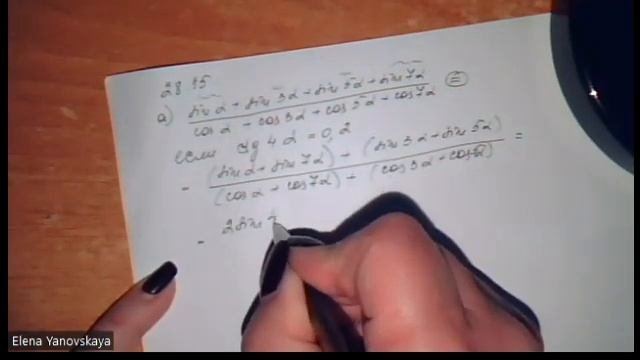 28.15
а) sin α + sin 3α + sin 5α + sin 7α
cos α + cos 3α + cos 5α + cos 7α =
если ctg 4α = 0,2
= (sin α + sin 7α) + (sin 3α + sin 5α) =
(cos α + cos 7α) + (cos 3α + cos 5α)
= 2 sin
Elena Yanovskaya